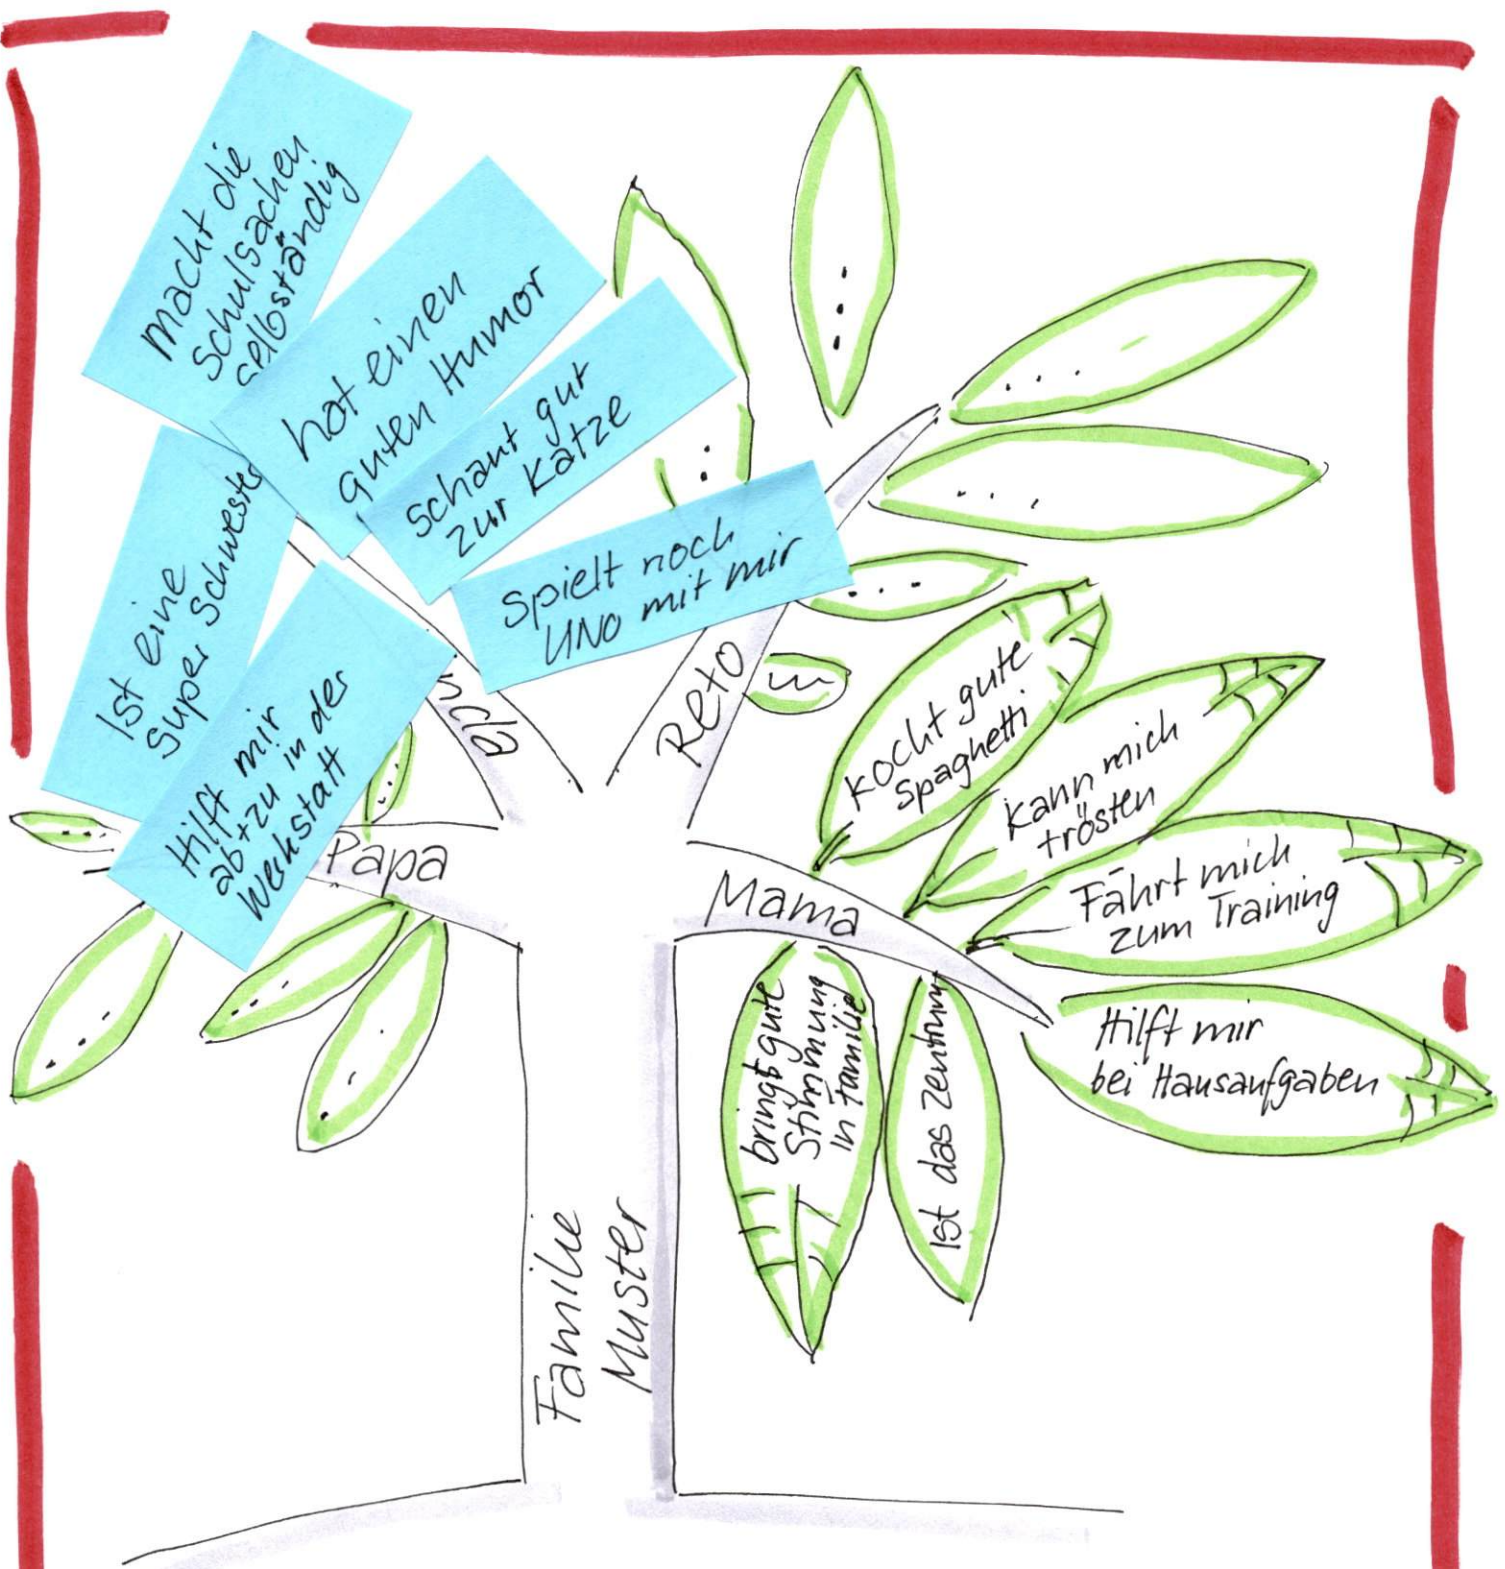 macht die
Schulsachen
selbständig
hat einen
guten Humor
schaut gut
zur Katze
Spielt noch
UNO mit mir
Ist eine
Super Schwester
Hilft mir
ab+zu in der
Werkstatt
Reto
Papa
Mama
kocht gute
Spaghetti
kann mich
trösten
Fährt mich
zum Training
Hilft mir
bei Hausaufgaben
bringt gute
Stimmung
in Familie
Ist das Zentrum
Familie
Muster